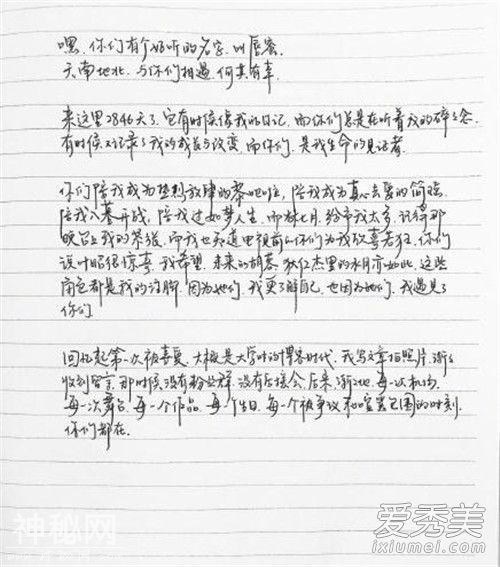 嘿，你们有个好听的名字，叫唇蜜。
天南地北，与你们相遇，何其有幸。
来这里2846天了，它有时候像我的日记，而你们总是在听着我的碎碎念。
有时候又记录了我的成长与改变，而你们，是我生命的见证者。
你们陪我成为热烈放肆的 陪我成为真心去爱的
陪我 陪我过如梦人生，而林七月，给予我太多，记得那
晚台上我的紧张，而我也知道电视前的你们为我欣喜若狂，你们
说叶昭很惊喜，我希望，未来的胡慕、狄仁杰里的水月亦如此，这些
角色都是我的注脚，因为她们，我更了解自己，也因为她们，我遇见了
你们。
回忆起第一次被喜爱，大概是大学时的博客时代，我写文章拍照片，渐渐
收到留言，那时候没有粉丝群，没有后援会，后来，渐渐地，每一次机场，
每一次舞台，每一个作品，每一个生日，每一个被争议和喧嚣包围的时刻，
你们都在。
神秘网
爱秀美
ixiumei.com